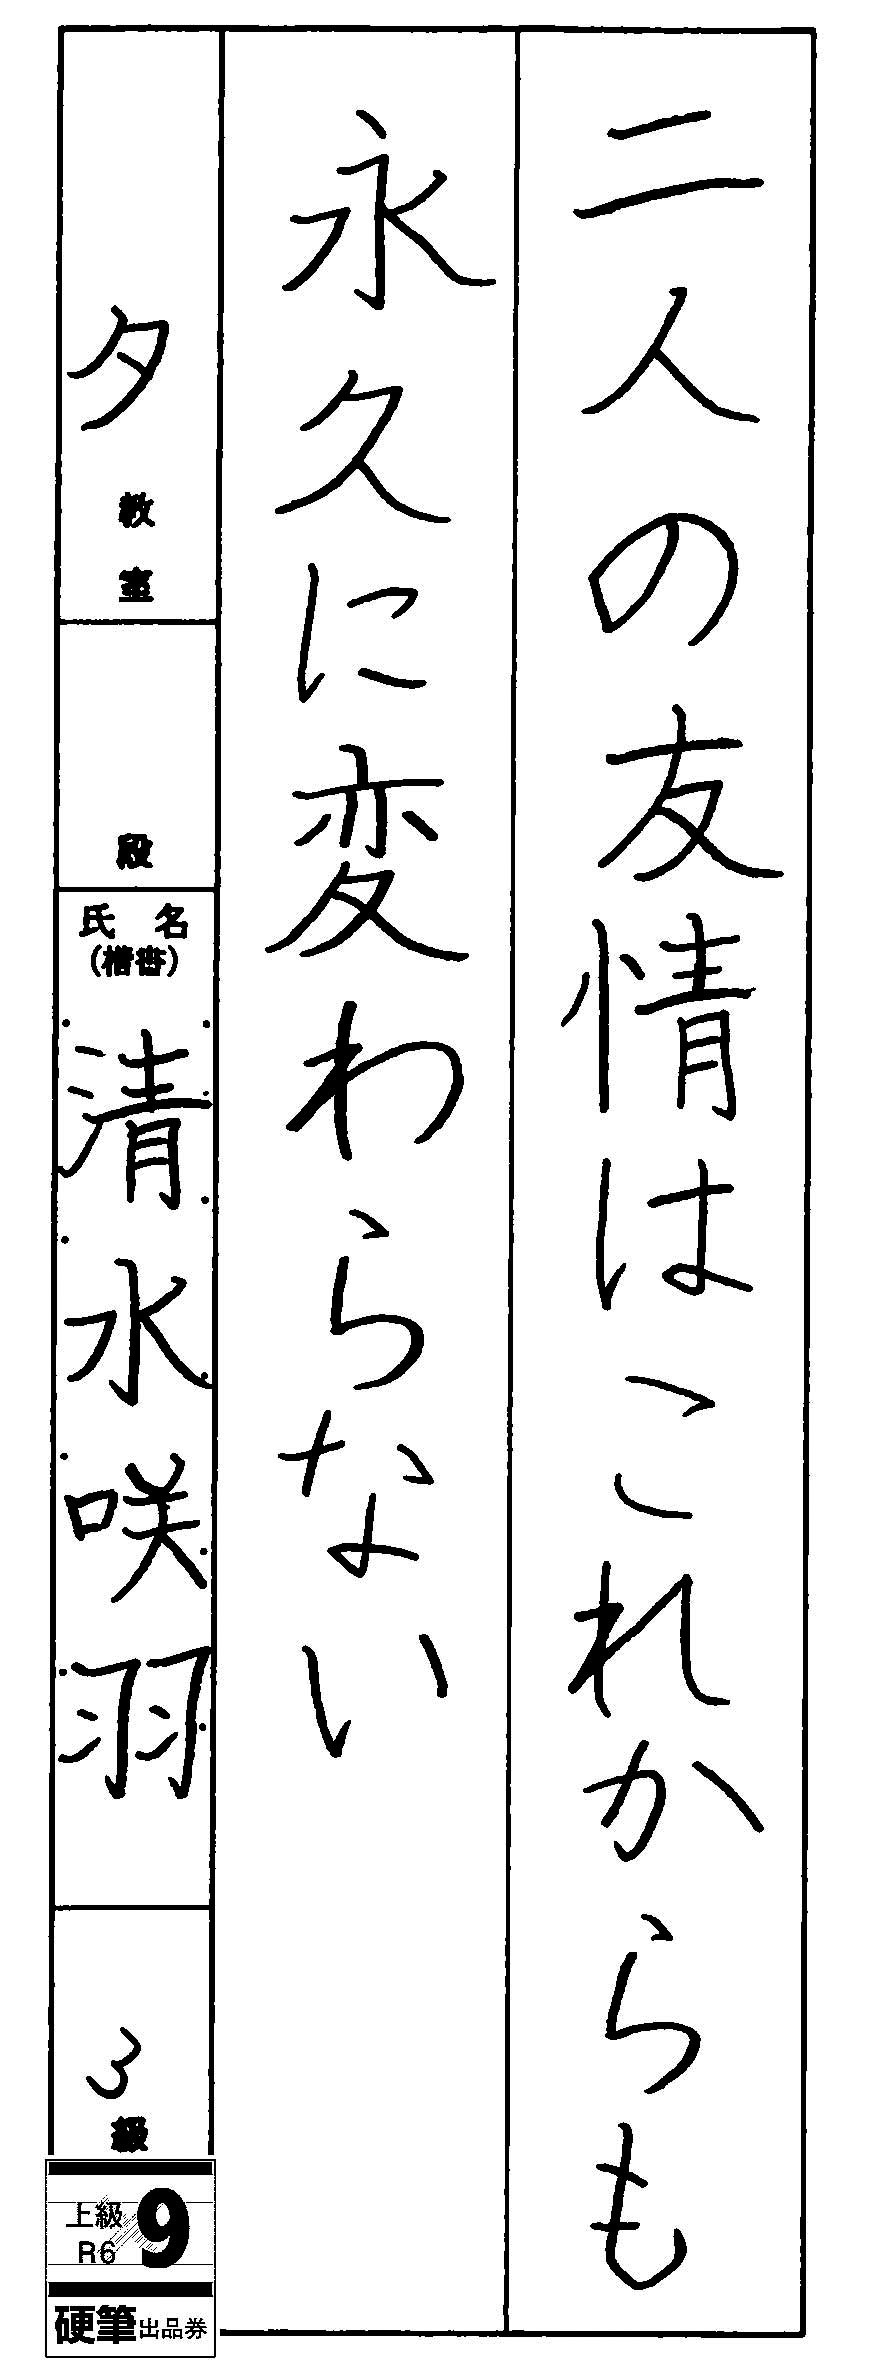 二人の友情はこれからも
永久に変わらない
夕教室
段
氏名
(楷書)
清水咲羽
3級
上級
R6
9
硬筆出品券